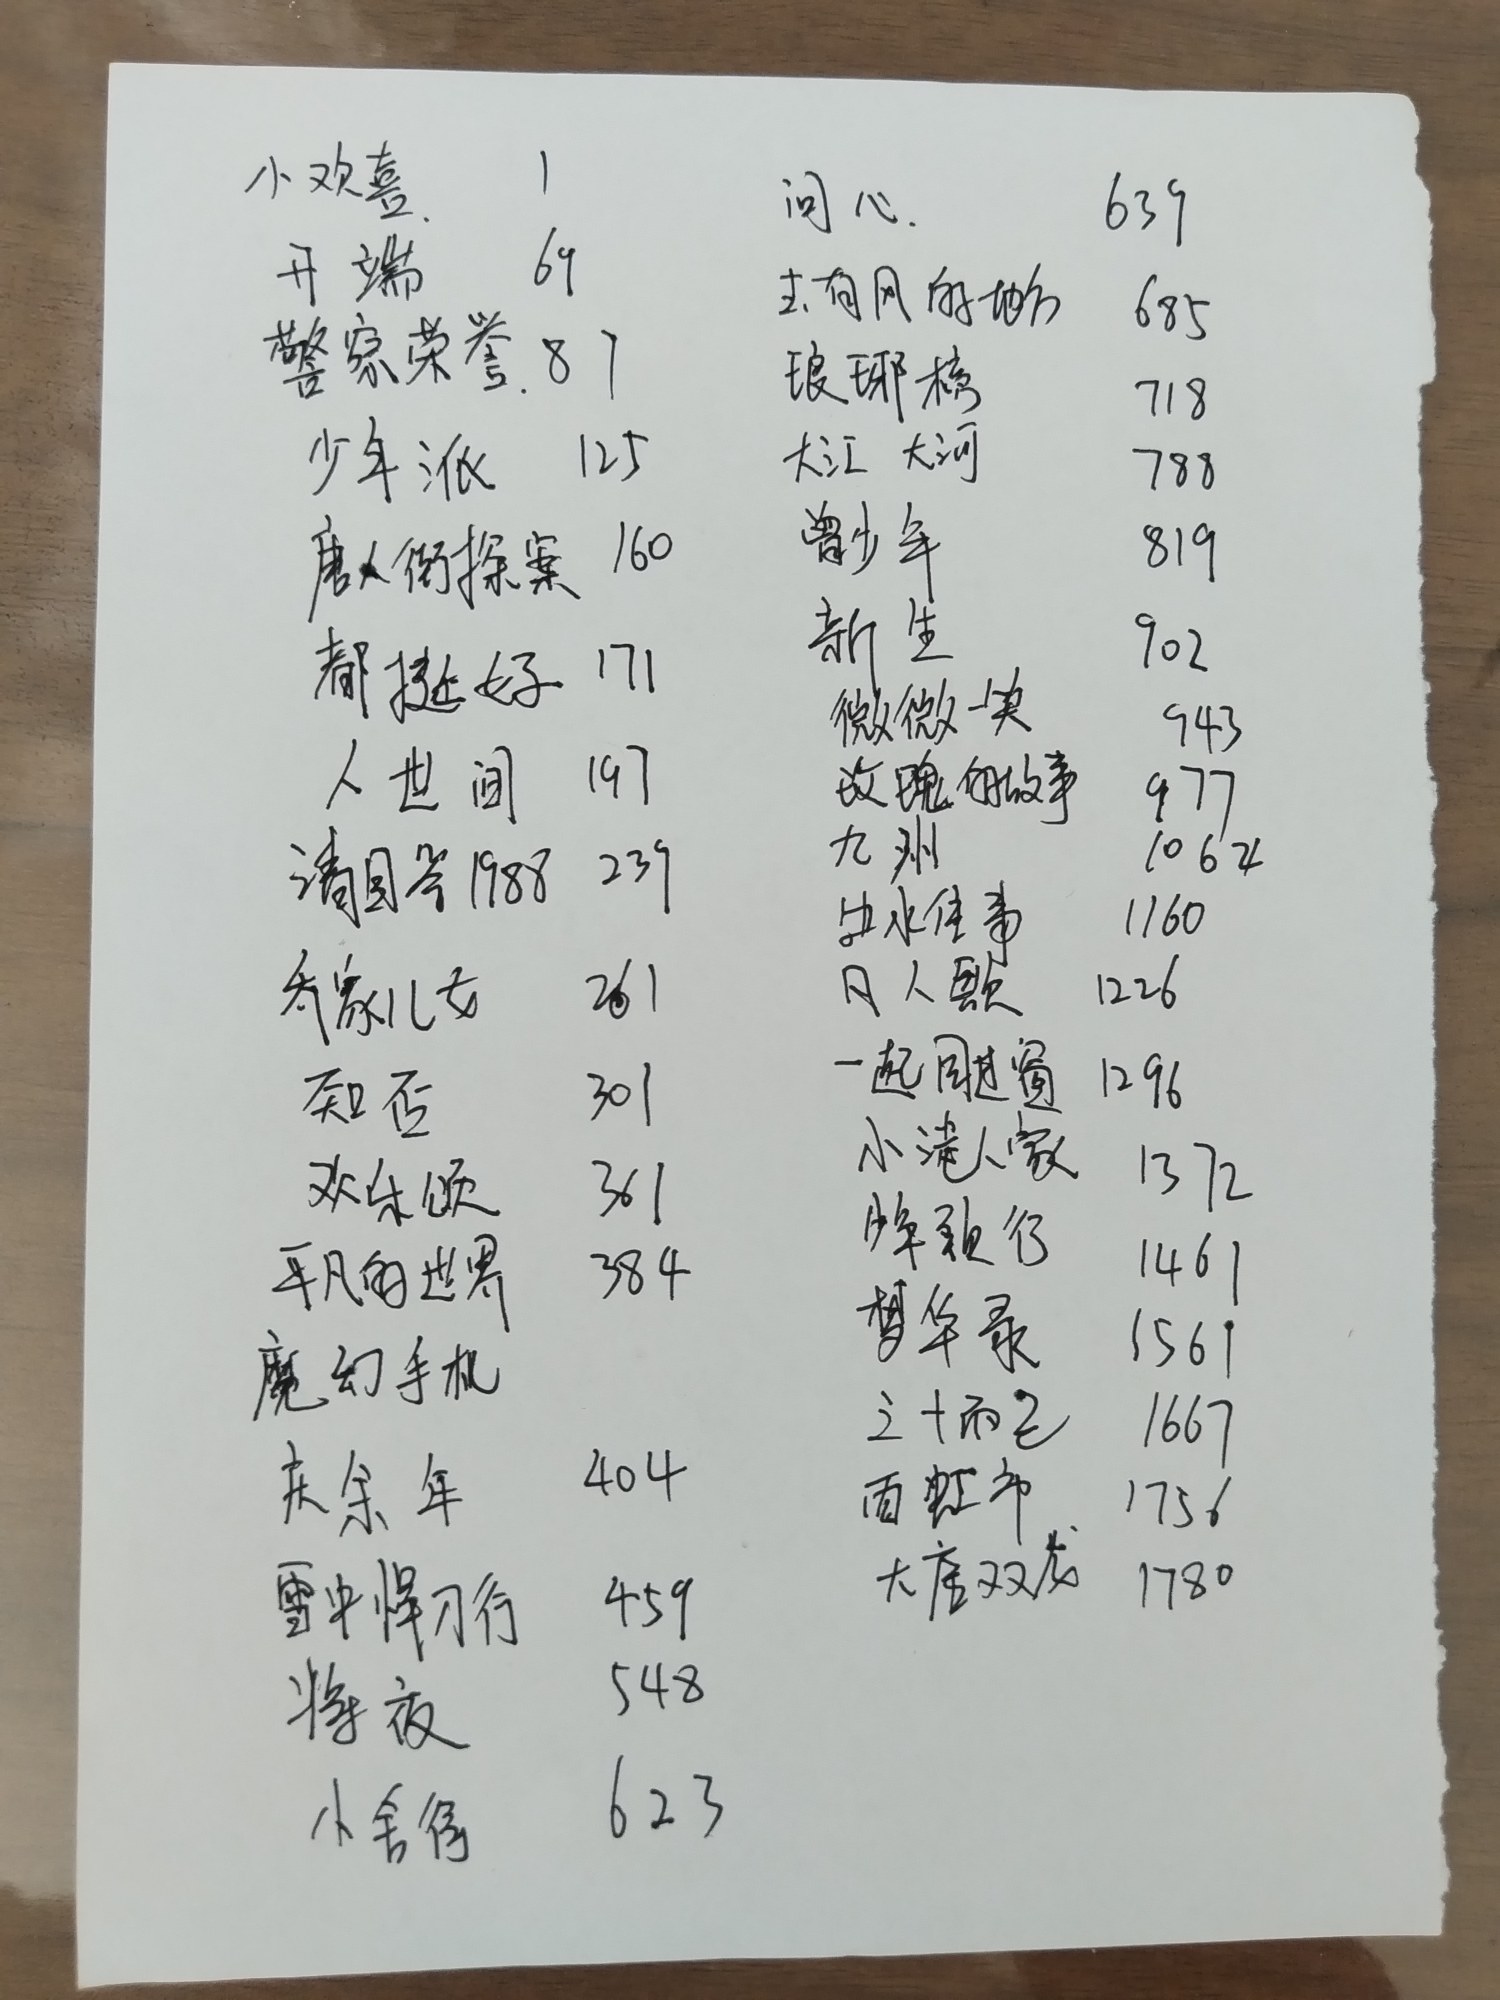 小欢喜. 1
开端 69
警察荣誉. 87
少年派 125
唐人街探案 160
都挺好 171
人世间 197
请回答1988 239
乔家儿女 261
知否 301
欢乐颂 361
平凡的世界 384
魔幻手机
庆余年 404
雪中悍刀行 459
将夜 548
小舍得 623
问心. 639
去有风的地方 685
琅琊榜 718
大江大河 788
曾少年 819
新生 902
微微一笑 943
玫瑰的故事 977
九州 1064
似水佳事 1160
凡人歌 1226
一起同过窗 1296
小巷人家 1372
少年歌行 1461
梦华录 1561
三十而已 1667
西虹市 1756
大唐双龙 1780